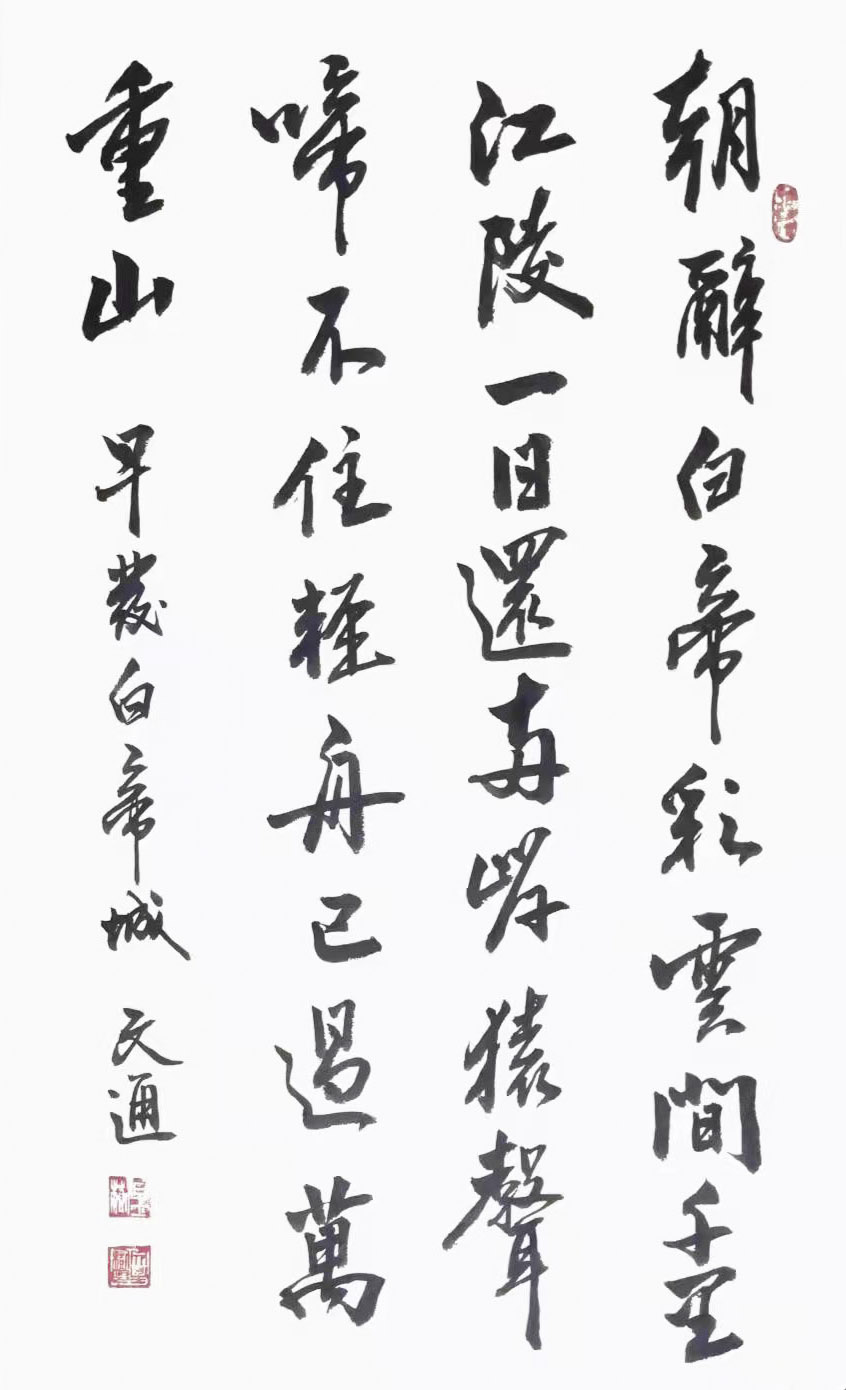 朝辭白帝彩雲間千里
江陵一日還兩岸猿聲
啼不住輕舟已過萬
重山 早發白帝城 文通